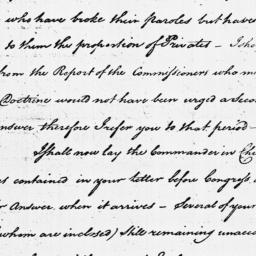 who have broke their paroles but have
to them the proportion of Privates – I sho
from the Report of the Commissioners who m
Doctrine would not have been urged a Seco
nswer therefore I refer you to that period –
I shall now lay the Commander in Che
contained in your letter before Congress
Answer when it arrives – Several of your
whom are inclosed) Still remaining unacc